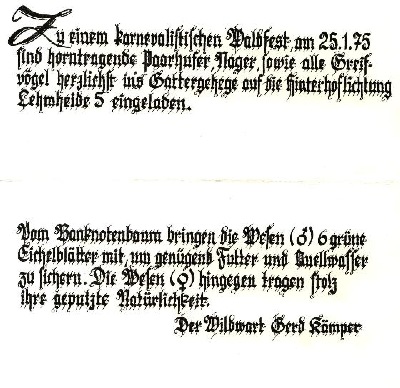 Zu einem karnevalistischen Waldfest am 25.1.75
sind horntragende Paarhufer, Nager, sowie alle Greif-
vögel herzlichst ins Gattergehege auf die Hinterhoflichtung
Lehmheide 5 eingeladen.
Vom Banknotenbaum bringen die Wesen (♂) 6 grüne
Eichelblätter mit, um genügend Futter und Quellwasser
zu sichern. Die Wesen (♀) hingegen tragen stolz
ihre geputzte Natürlichkeit.
Der Wildwart Gerd Kämper